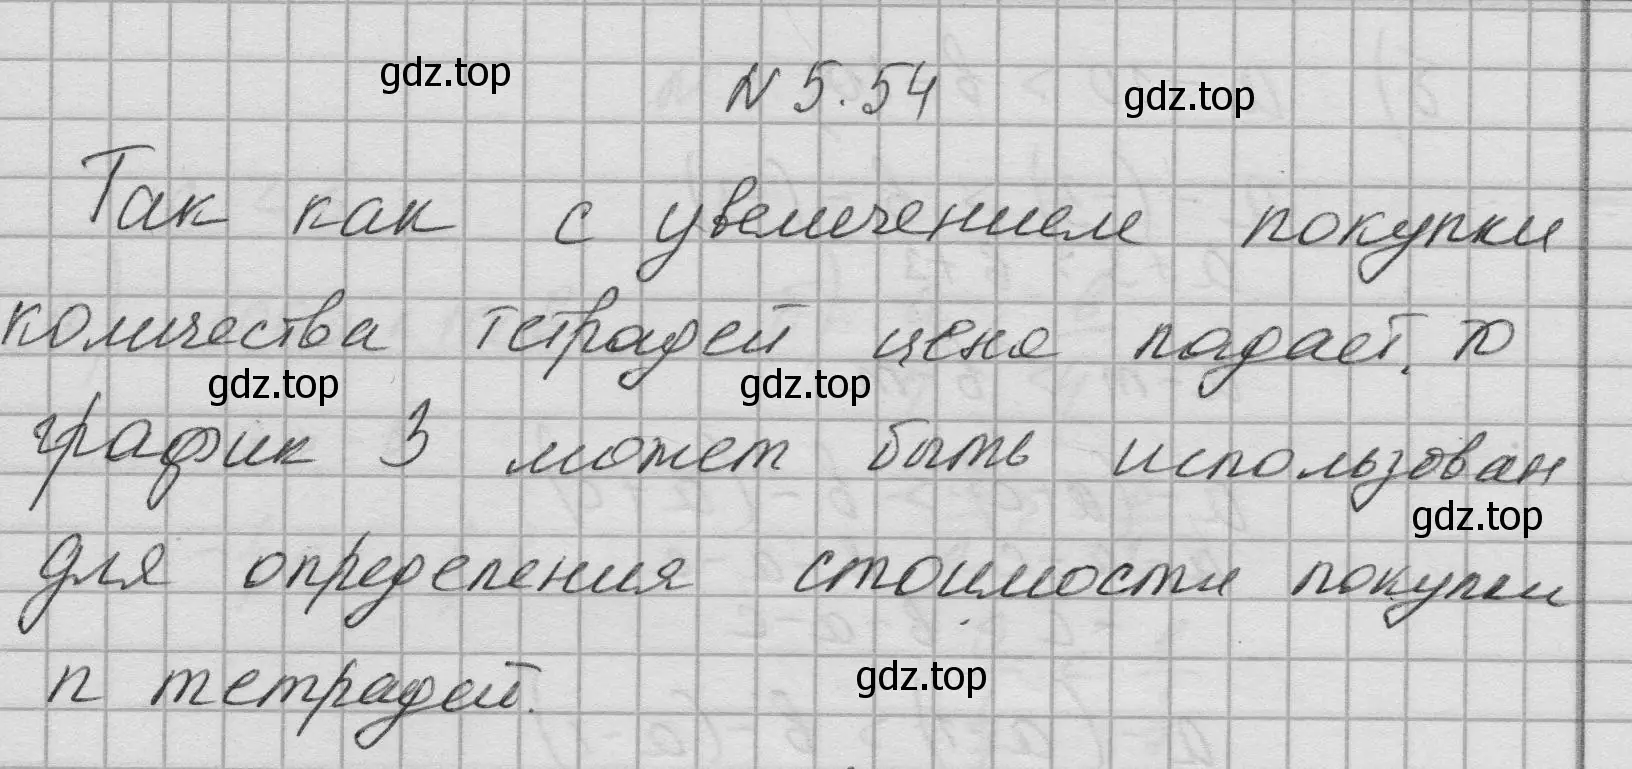 gdz.top
N 5.54
gdz.top
Так как с увеличением покупки
количества тетрадей цена падает, то
gdz.top gdz.top
график 3 может быть использован
gdz.top
для определения стоимости покупки
n тетрадей.
gdz.top